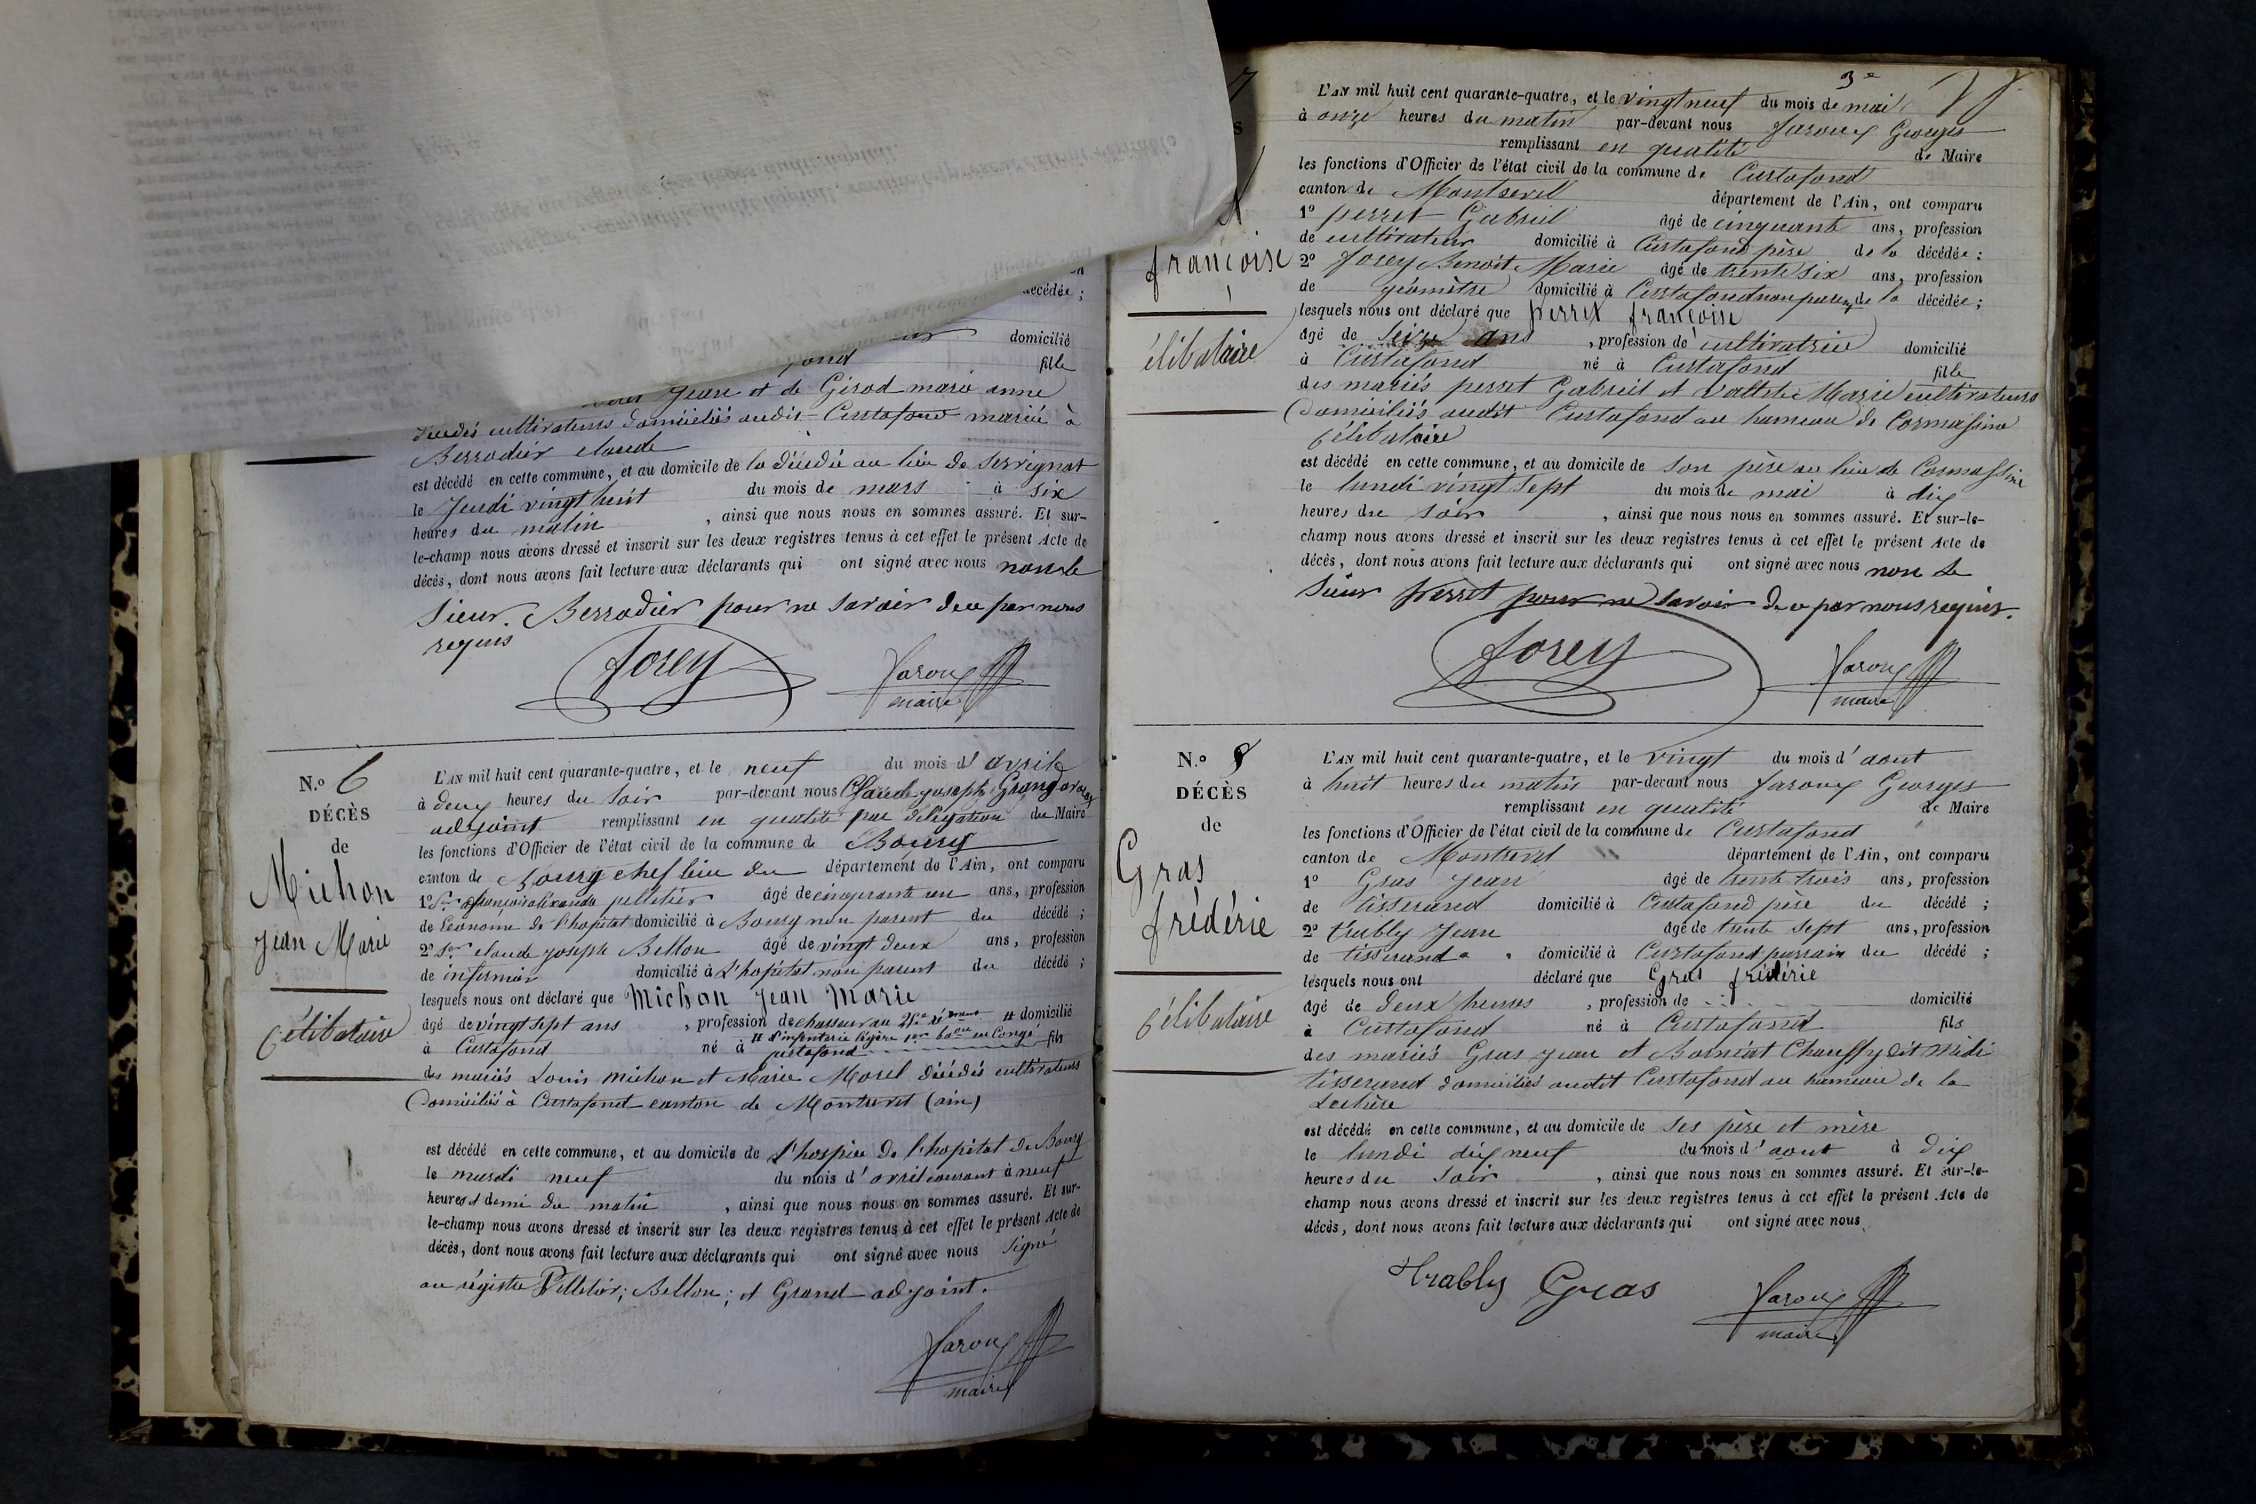 décédée ;
domicilié
fond fille
Jean et de Girod marie anne
décédés cultivateurs domiciliés audit Curtafond mariée à
Berrodier claude
est décédé en cette commune, et au domicile de la décédée au lieu de Servignat
le Jeudi vingt huit du mois de mars à six
heures du matin , ainsi que nous nous en sommes assuré. Et sur-
le-champ nous avons dressé et inscrit sur les deux registres tenus à cet effet le présent Acte de
décès, dont nous avons fait lecture aux déclarants qui ont signé avec nous non le
Sieur. Berrodier pour ne savoir de ce par nous
requis
forey faroux
maire
N.o 6
DÉCÈS
de
Michon
Jean Marie
Célibataire
L'AN mil huit cent quarante-quatre, et le neuf du mois d' avril
à deux heures du soir par-devant nous Claude joseph Grand
adjoint remplissant en qualité par délégation du Maire
les fonctions d'Officier de l'état civil de la commune de Bourg
canton de Bourg chef lieu du département de l'Ain, ont comparu
1o Sr françois alexandre pelletier âgé de cinquante un ans, profession
de Econome de l'hopital domicilié à Bourg non parent du décédé ;
2o Sr claude joseph Bellon âgé de vingt deux ans, profession
de infirmier domicilié à l'hopital non parent du décédé ;
lesquels nous ont déclaré que Michon Jean Marie
âgé de vingt sept ans , profession de chasseur au domicilié
d'infanterie légère en Congé
à Curtafond né à curtafond fils
des mariés Louis michon et Marie Morel décédés cultivateurs
Domiciliés à Curtafond canton de Montrevel (ain)
est décédé en cette commune, et au domicile de l'hospice de l'hopital de Bourg
le mardi neuf du mois d'avril courant à neuf
heures et demi du matin , ainsi que nous nous en sommes assuré. Et sur-
le-champ nous avons dressé et inscrit sur les deux registres tenus à cet effet le présent Acte de
décès, dont nous avons fait lecture aux déclarants qui ont signé avec nous signé
au régistre Pelletier; Bellon; et Grand adjoint.
faroux
maire
3e
7
françoise
élibataire
L'AN mil huit cent quarante-quatre, et le vingt neuf du mois de mai
à onze heures du matin par-devant nous faroux Georges
remplissant en qualité de Maire
les fonctions d'Officier de l'état civil de la commune de Curtafond
canton de Montrevel département de l'Ain, ont comparu
1o perret Gabriel âgé de cinquante ans, profession
de cultivateur domicilié à Curtafond père de la décédée ;
2o forey Benoit Marie âgé de trente six ans, profession
de géomètre domicilié à Curtafond non parent de la décédée ;
lesquels nous ont déclaré que perret françoise
âgé de Seize ans , profession de cultivatrice domicilié
à Curtafond né à Curtafond fille
des mariés perret Gabriel et Marie cultivateurs
Domiciliés audit Curtafond au hameau de
Célibataire
est décédé en cette commune, et au domicile de son père au lieu de
le lundi vingt sept du mois de mai à dix
heures du soir , ainsi que nous nous en sommes assuré. Et sur-le-
champ nous avons dressé et inscrit sur les deux registres tenus à cet effet le présent Acte de
décès, dont nous avons fait lecture aux déclarants qui ont signé avec nous non le
Sieur perret pour ne savoir de ce par nous requis.
forey faroux
maire
N.o 8
DÉCÈS
de
Gras
frédéric
Célibataire
L'AN mil huit cent quarante-quatre, et le vingt du mois d'aout
à huit heures du matin par-devant nous faroux Georges
remplissant en qualité de Maire
les fonctions d'Officier de l'état civil de la commune de Curtafond
canton de Montrevel département de l'Ain, ont comparu
1o Gras Jean âgé de trente trois ans, profession
de tisserand domicilié à Curtafond père du décédé ;
2o trably Jean âgé de trente sept ans, profession
de tisserand domicilié à Curtafond parrain du décédé ;
lesquels nous ont déclaré que Gras frédéric
âgé de deux heures , profession de domicilié
à Curtafond né à Curtafond fils
des mariés Gras jean et
tisserand domiciliés audit Curtafond au hameau de la
est décédé en cette commune, et au domicile de ses père et mère
le lundi dix neuf du mois d'aout à dix
heures du soir , ainsi que nous nous en sommes assuré. Et sur-le-
champ nous avons dressé et inscrit sur les deux registres tenus à cet effet le présent Acte de
décès, dont nous avons fait lecture aux déclarants qui ont signé avec nous
trably Gras faroux
maire